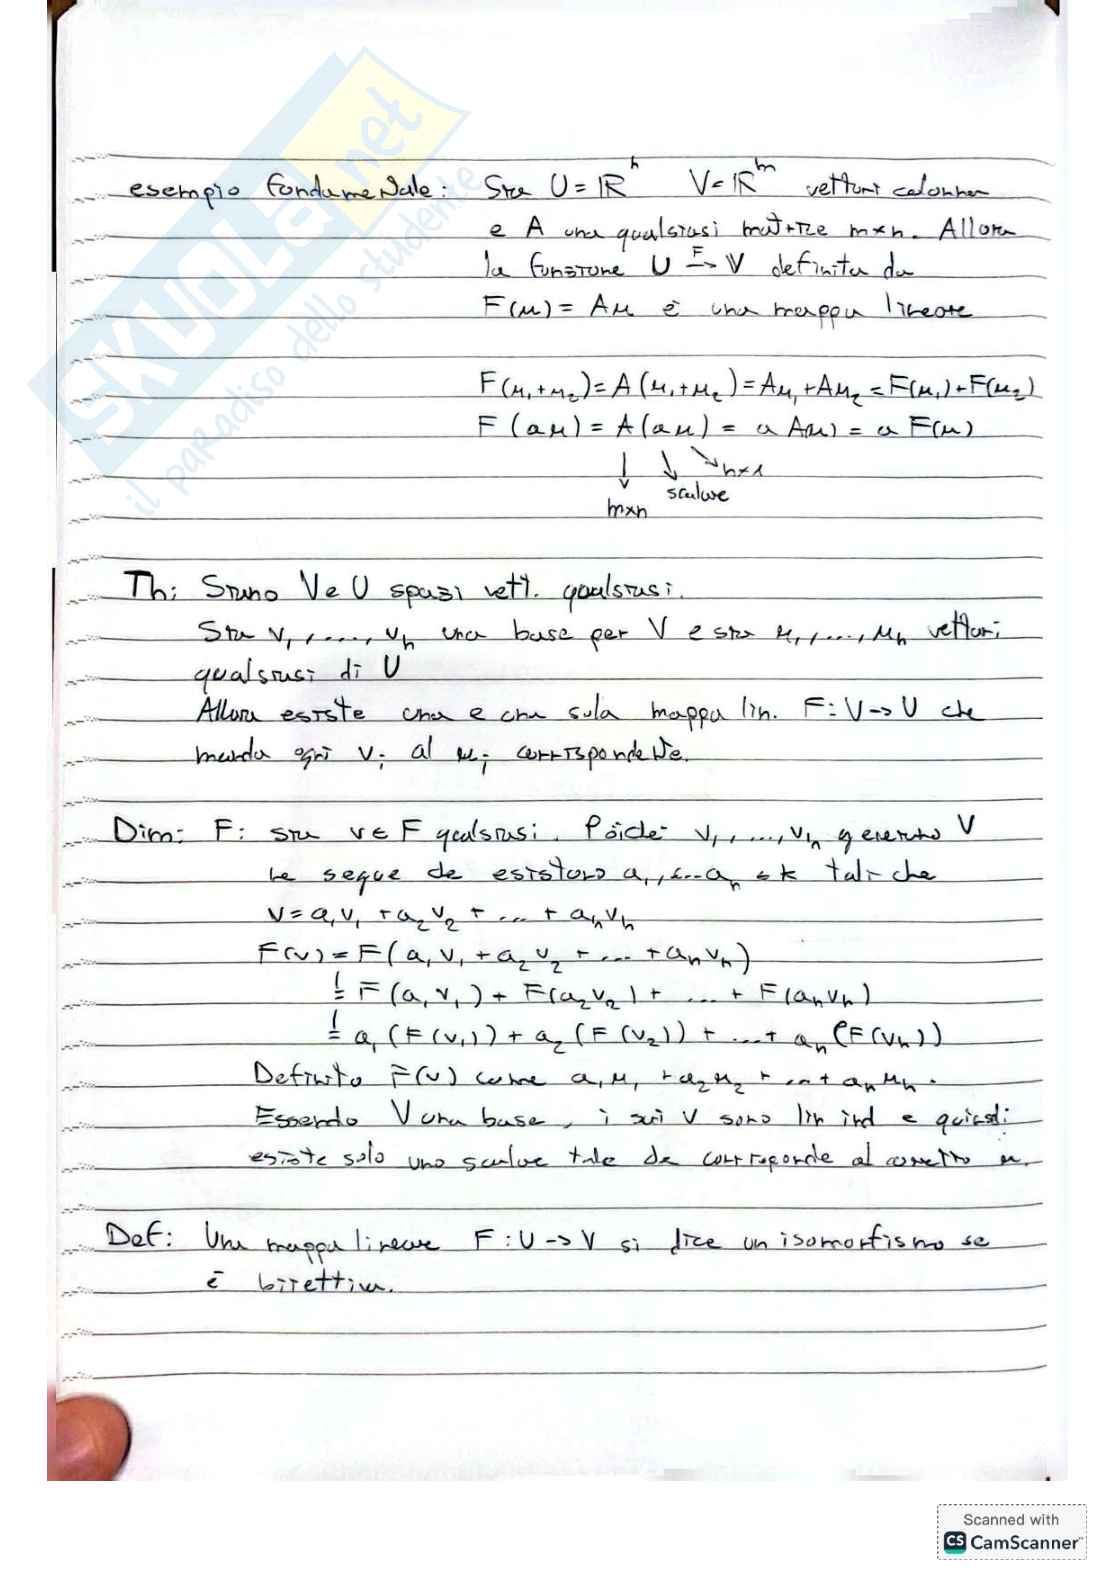 SKUOLA.net
il paradiso dello studente
esempio fondamentale: Sia U = ℝⁿ V = ℝᵐ vettori colonna
e A una qualsiasi matrice m×n. Allora
la funzione U -F-> V definita da
F(u) = Au è una mappa lineare
F(u₁+u₂) = A(u₁+u₂) = Au₁+Au₂ = F(u₁)+F(u₂)
F(au) = A(au) = a A(u) = a F(u)
↓ ↓ ↘ n×1
scalare
m×n
Th: Siano V e U spazi vett. qualsiasi.
Sia v₁,....,vₙ una base per V e sia u₁,....,uₙ vettori
qualsiasi di U
Allora esiste una e una sola mappa lin. F: V→U che
manda ogni vᵢ al uᵢ corrispondente.
Dim: F: sia v∈F qualsiasi. Poiché v₁,...,vₙ generano V
ne segue che esistono a₁,...aₙ ∈ k tali che
v = a₁v₁ + a₂v₂ + ... + aₙvₙ
F(v) = F(a₁v₁ + a₂v₂ + ... + aₙvₙ)
= F(a₁v₁) + F(a₂v₂) + ... + F(aₙvₙ)
= a₁(F(v₁)) + a₂(F(v₂)) + ... + aₙ(F(vₙ))
Definito F(v) come a₁u₁ + a₂u₂ + ... + aₙuₙ.
Essendo V una base, i suoi v sono lin ind e quindi
esiste solo uno scalare tale da corrisponde al corretto u.
Def: Una mappa lineare F: U→V si dice un isomorfismo se
è biiettiva.
Scanned with
CS CamScanner